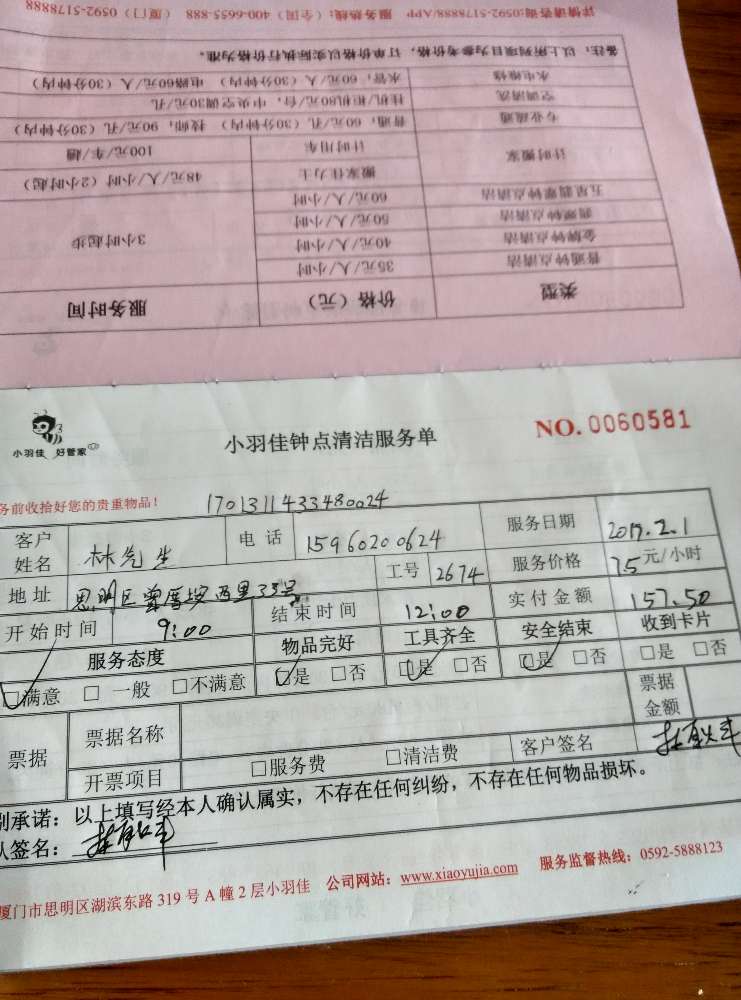 详情请咨询:0592-5178888/APP 服务热线：(全国) 400-6655-888 (厦门) 0592-5178888
备注：以上所列项目为参考价格，订单价格以实际执行价格为准。
水电维修 水管，60元/人（30分钟内） 电路60元/人（30分钟内）
空调清洗 挂机/柜机80元/台，中央空调30元/孔
专业疏通 普通，60元/孔（30分钟内） 技师，90元/孔（30分钟内）
计时搬家 计时用车 100元/车/趟
搬家壮力士 48元/人/小时（2小时起）
五星翡翠钟点清洁 60元/人/小时
翡翠钟点清洁 50元/人/小时
金牌钟点清洁 40元/人/小时 3小时起步
普通钟点清洁 35元/人/小时
类型 价格（元） 服务时间
小羽佳 好管家
小羽佳钟点清洁服务单
NO. 0060581
务前收拾好您的贵重物品！ 1701311433480024
客户姓名 林先生 电话 15960200624 服务日期 2017.2.1
地址 思明区曾厝垵西里33号 工号 2674 服务价格 75元/小时
开始时间 9:00 结束时间 12:00 实付金额 157.50
服务态度 物品完好 工具齐全 安全结束 收到卡片
□满意 □一般 □不满意 □是 □否 □是 □否 □是 □否 □是 □否
票据 票据名称 票据金额
开票项目 □服务费 □清洁费 客户签名
别承诺：以上填写经本人确认属实，不存在任何纠纷，不存在任何物品损坏。
人签名：
厦门市思明区湖滨东路319号A幢2层小羽佳 公司网站：www.xiaoyujia.com 服务监督热线：0592-5888123